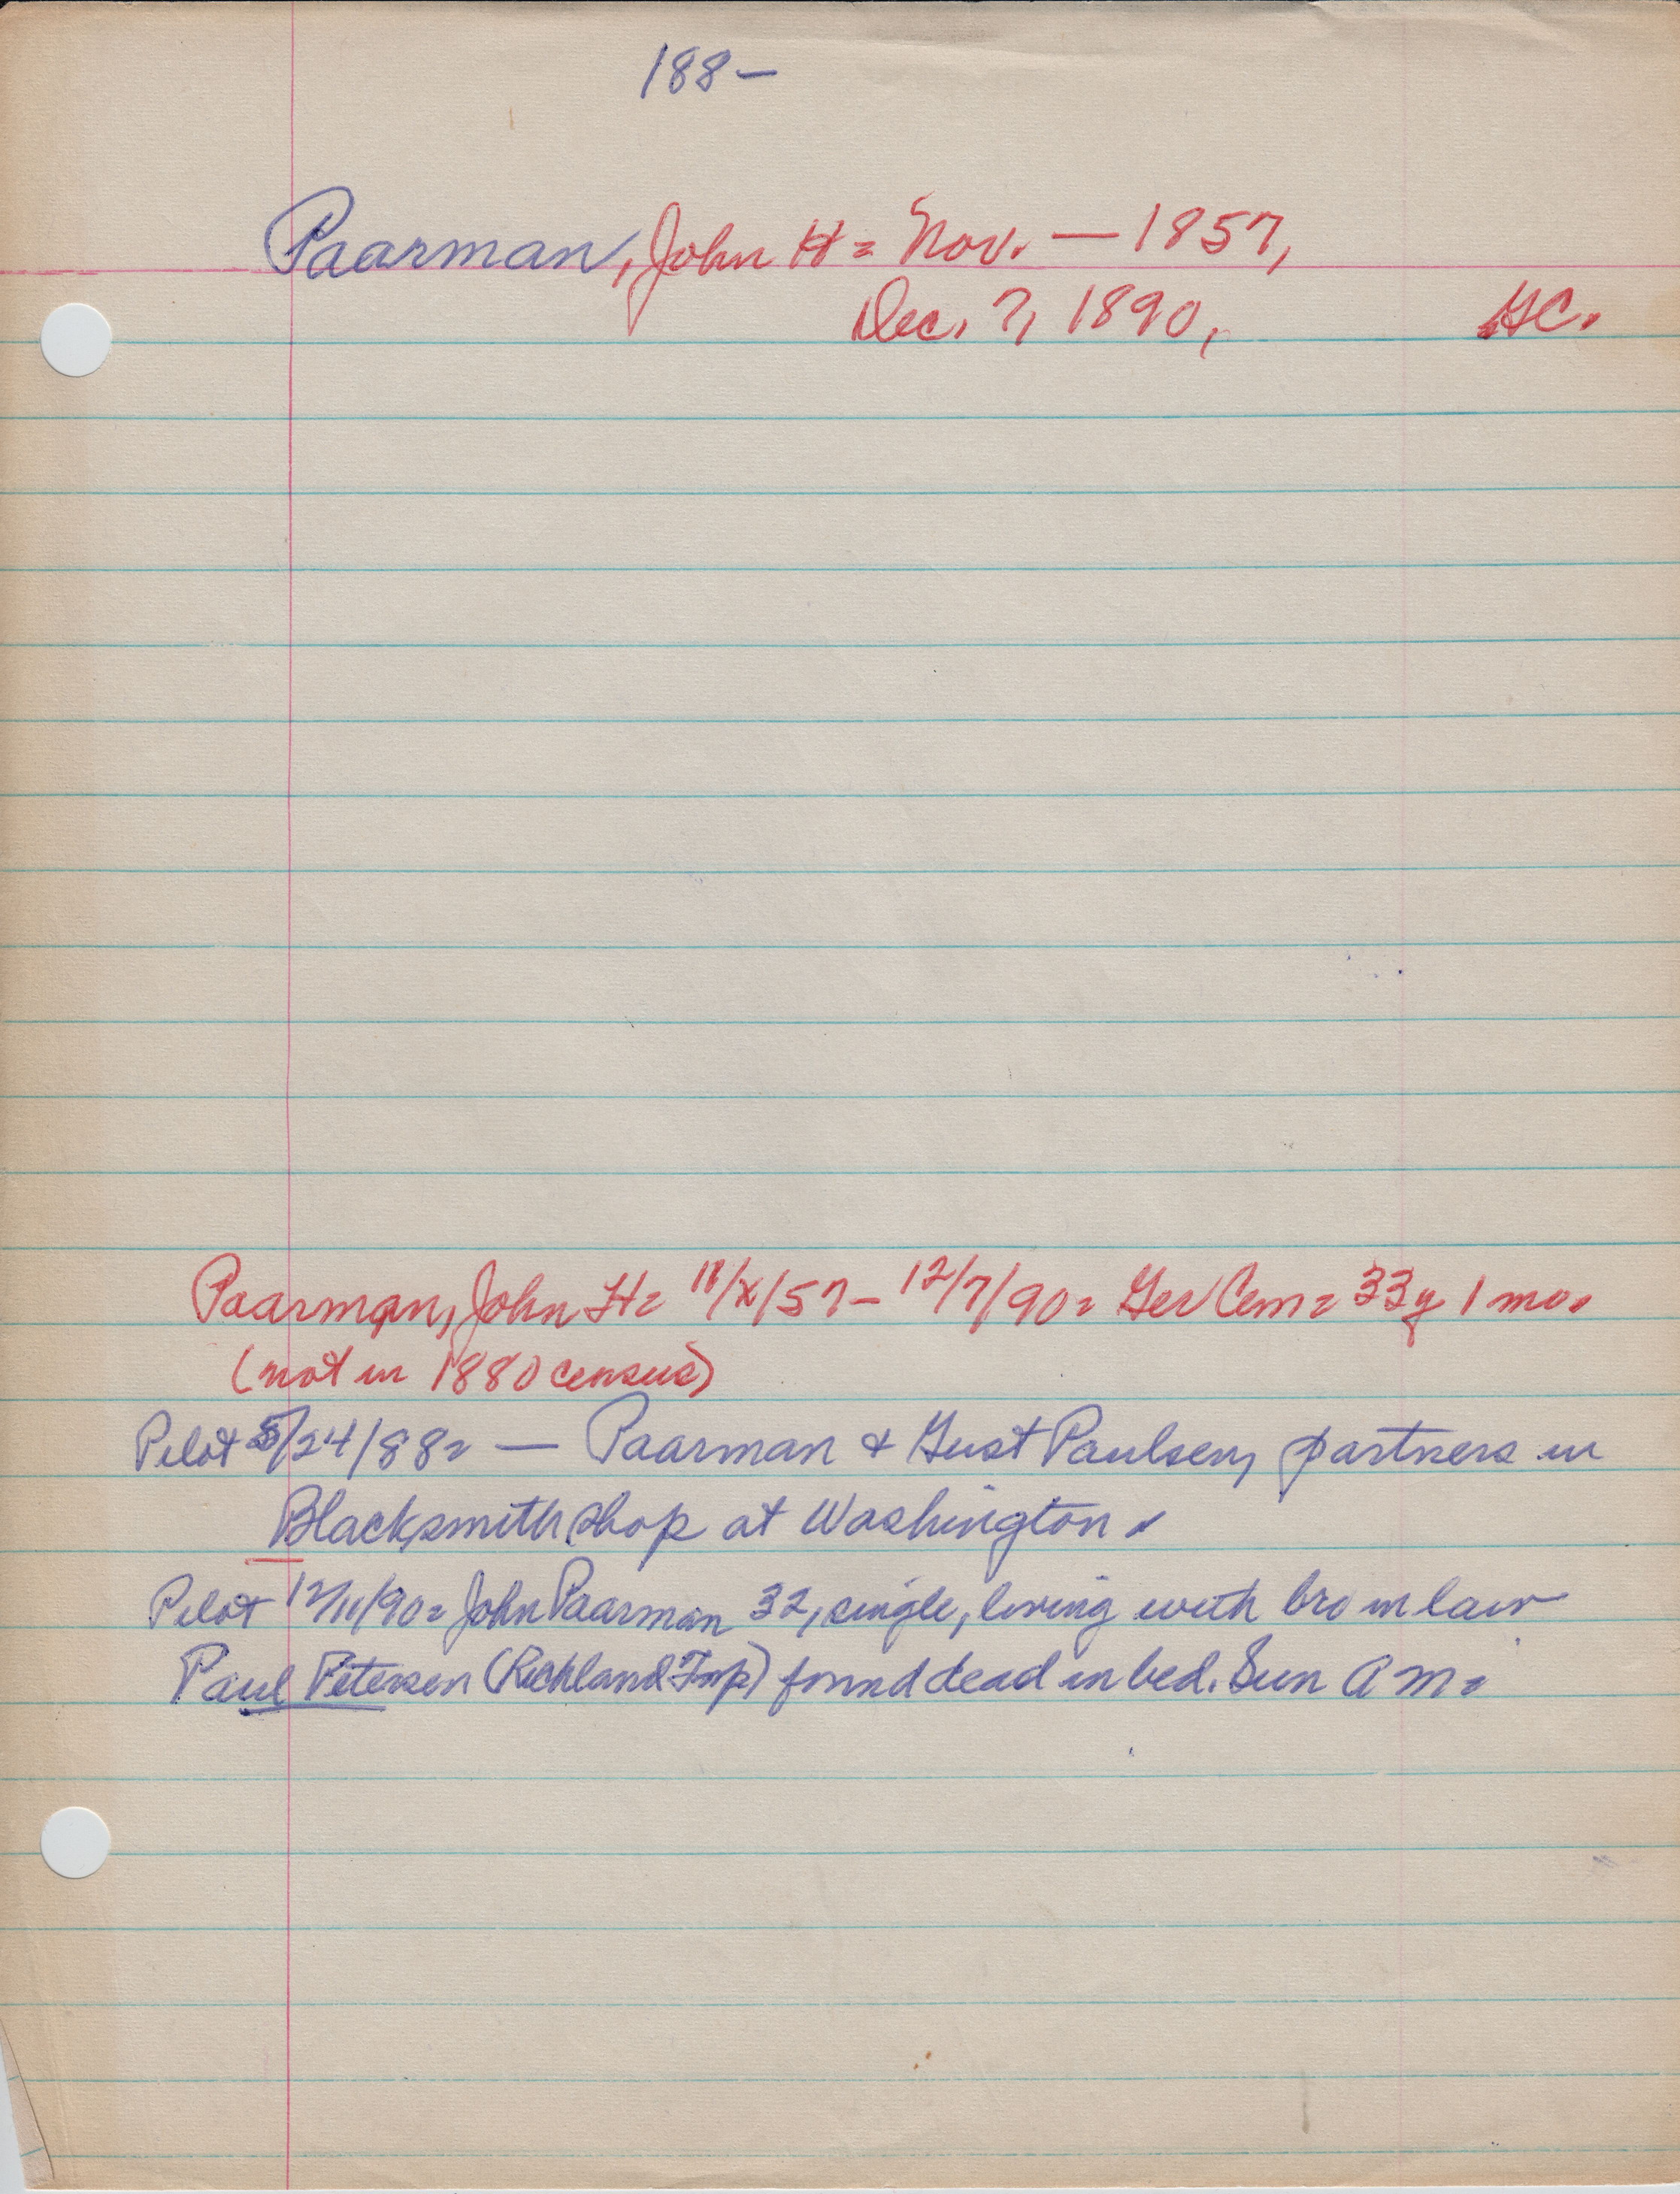 188-
Paarman, John H= Nov. — 1857,
Dec. 7, 1890, GC.
Paarman, John H= 11/x/57- 12/7/90= Ger Cem= 33y 1 mo.
(not in 1880 census)
Pilot 5/24/88= — Paarman & Gust Paulsen, partners in
Blacksmith shop at Washington.
Pilot 12/11/90= John Paarman 32, single, living with bro in law
Paul Petersen (Richland Tnp) found dead in bed. Sun A M=